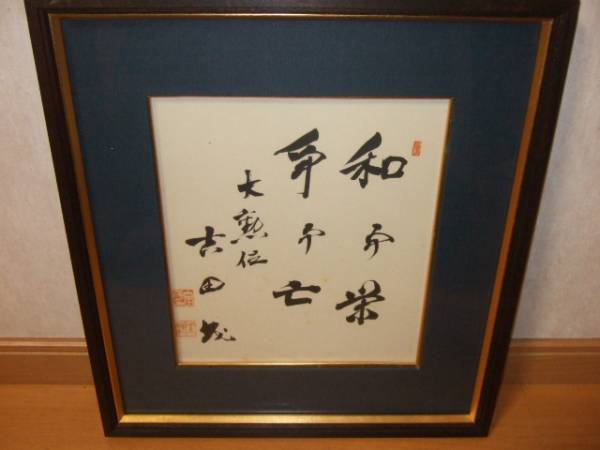 和而栄
争而亡
大勲位
吉田茂